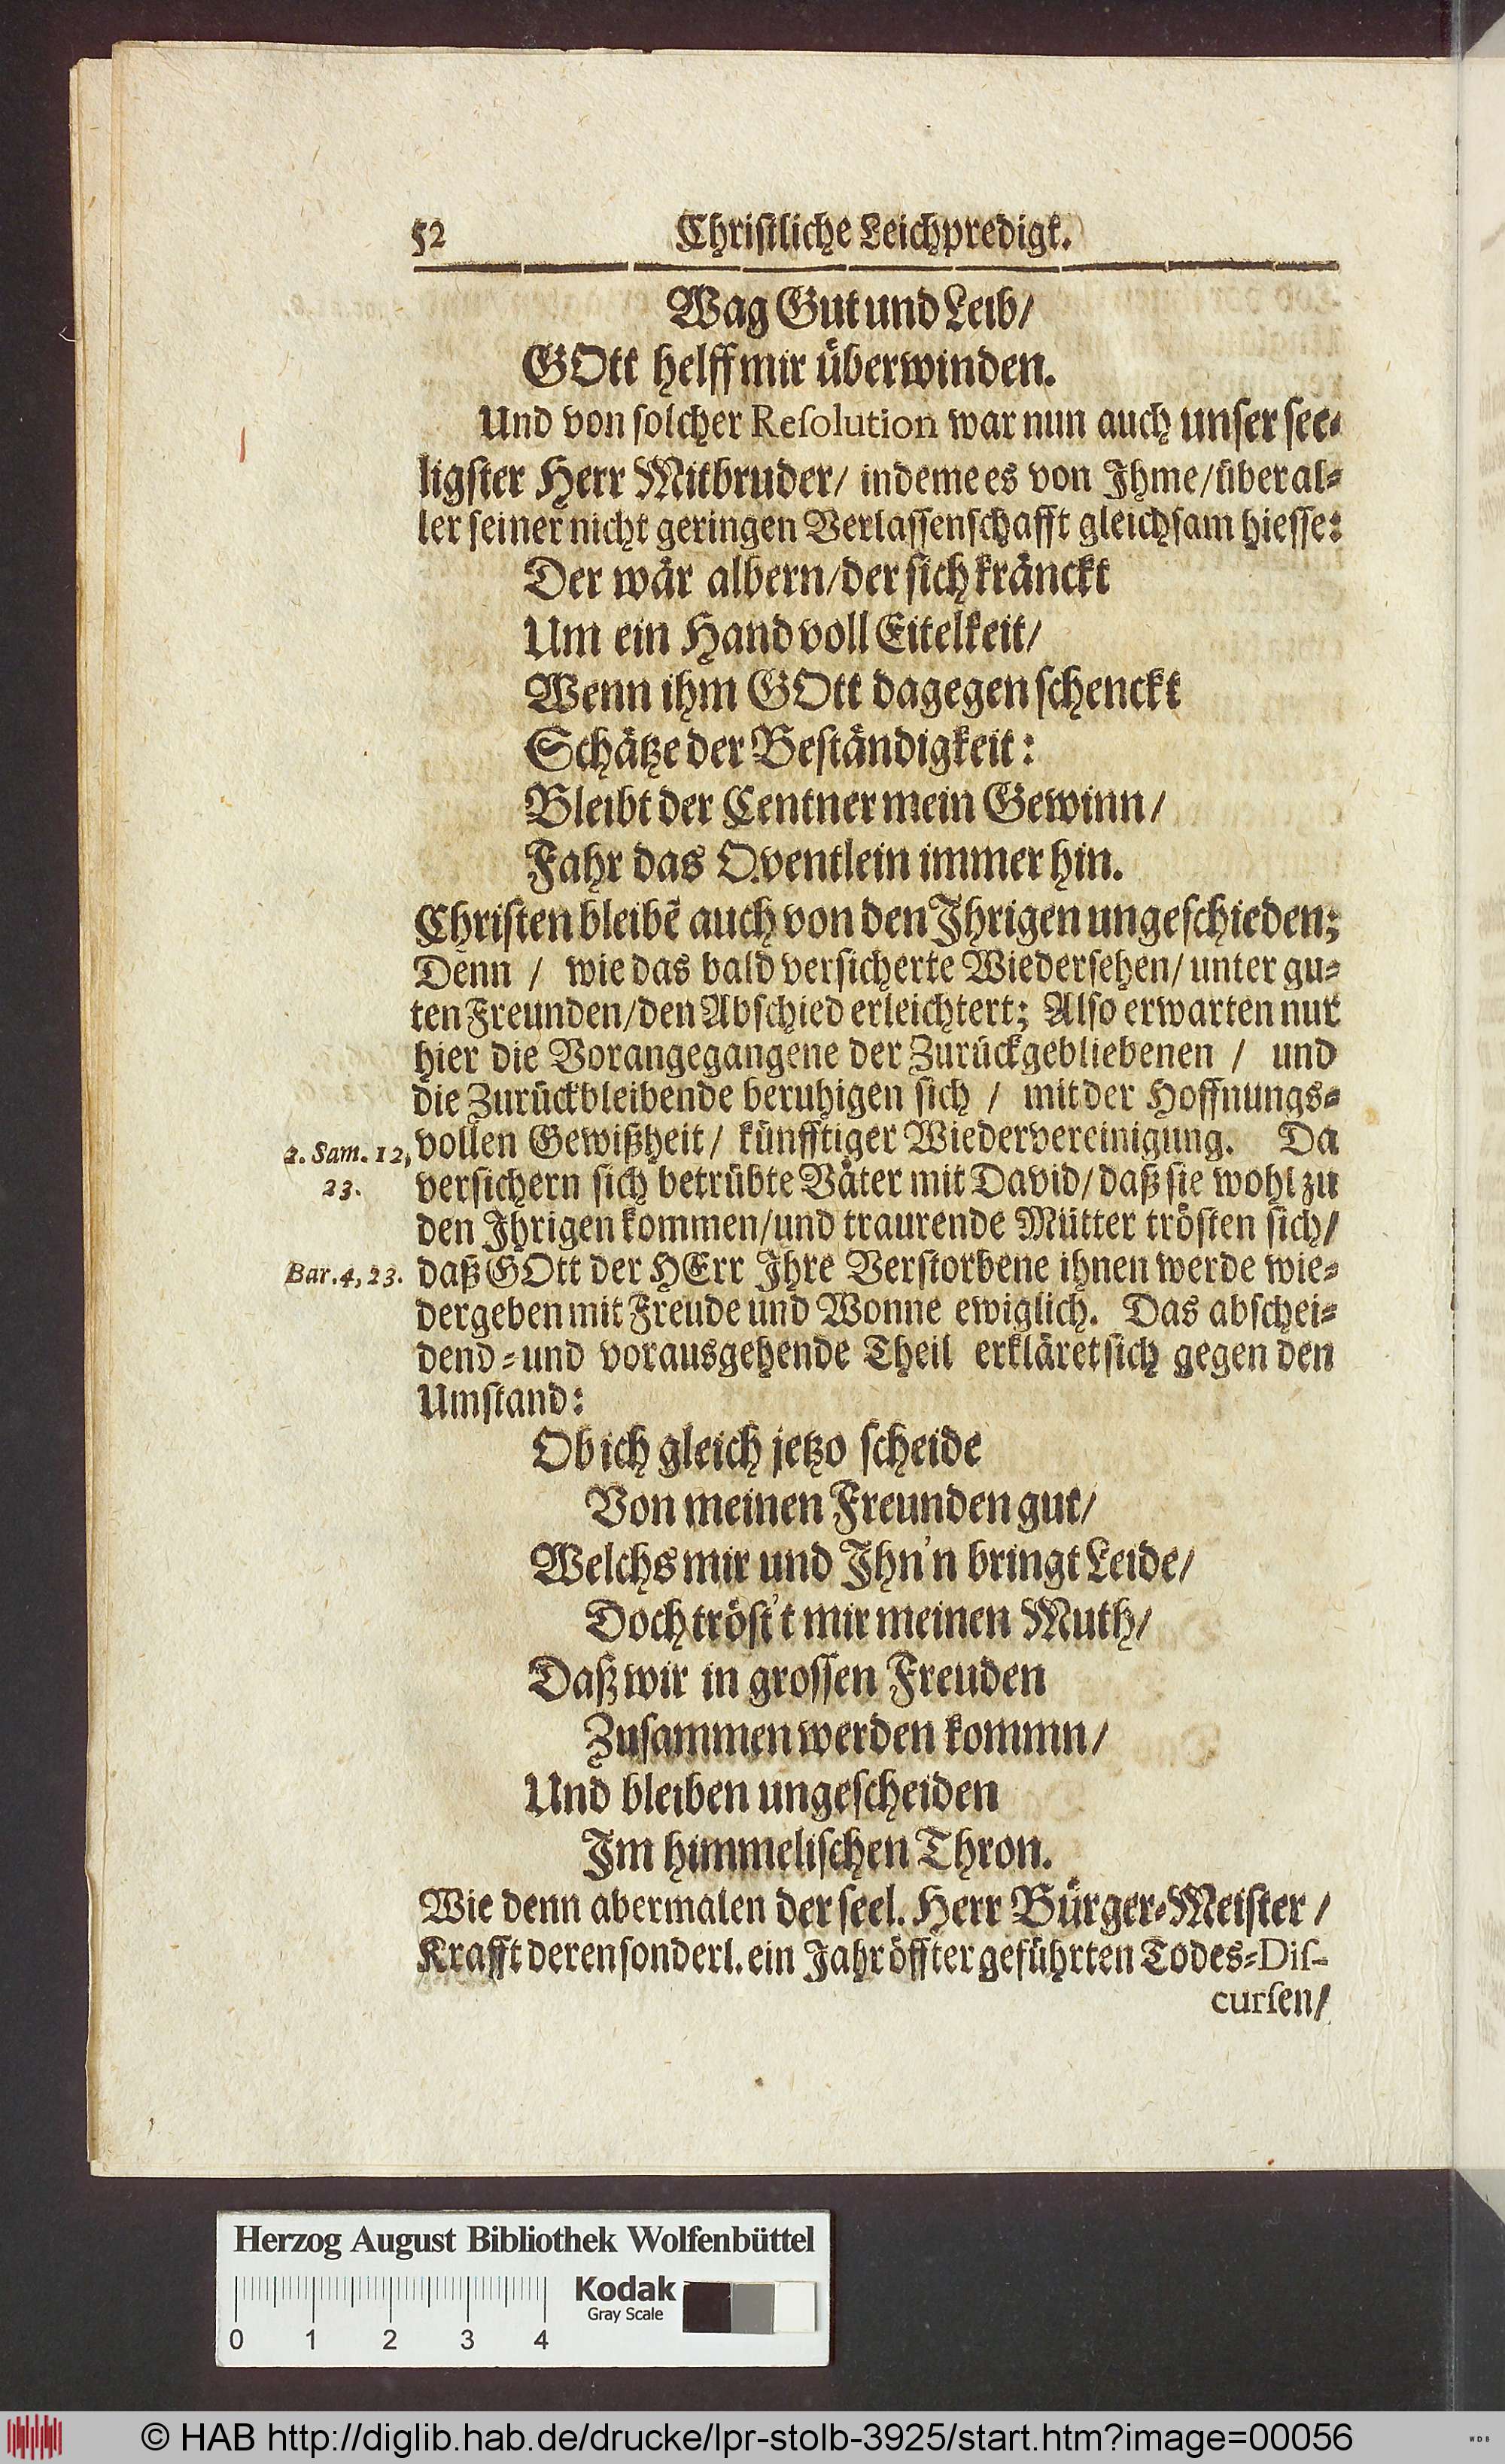 52 Christliche Leichpredigt.
Wag Gut und Leib/
GOtt helff mir überwinden.
Und von solcher Resolution war nun auch unser see-
ligster Herr Mitbruder/ indeme es von Ihme/ über al-
ler seiner nicht geringen Verlassenschafft gleichsam hiesse:
Der wär albern/ der sich kränckt
Um ein Hand voll Eitelkeit/
Wenn ihm GOtt dagegen schenckt
Schätze der Beständigkeit:
Bleibt der Centner mein Gewinn/
Fahr das Qventlein immer hin.
Christen bleibẽ auch von den Ihrigen ungeschieden;
Denn / wie das bald versicherte Wiedersehen/ unter gu-
ten Freunden/ den Abschied erleichtert; Also erwarten nur
hier die Vorangegangene der Zurückgebliebenen / und
die Zurückbleibende beruhigen sich / mit der Hoffnungs-
2. Sam. 12, vollen Gewißheit/ künfftiger Wiedervereinigung. Da
23. versichern sich betrübte Väter mit David/ daß sie wohl zu
den Ihrigen kommen/ und traurende Mütter trösten sich/
Bar. 4, 23. daß GOtt der HErr Ihre Verstorbene ihnen werde wie-
dergeben mit Freude und Wonne ewiglich. Das abschei-
dend- und vorausgehende Theil erkläret sich gegen den
Umstand:
Ob ich gleich jetzo scheide
Von meinen Freunden gut/
Welchs mir und Ihn'n bringt Leide/
Doch tröst't mir meinen Muth/
Daß wir in grossen Freuden
Zusammen werden kommn/
Und bleiben ungescheiden
Im himmelischen Thron.
Wie denn abermalen der seel. Herr Bürger-Meister /
Krafft deren sonderl. ein Jahr öffter geführten Todes-Dis-
cursen/
Herzog August Bibliothek Wolfenbüttel
Kodak
Gray Scale
0 1 2 3 4
© HAB http://diglib.hab.de/drucke/lpr-stolb-3925/start.htm?image=00056
WDB